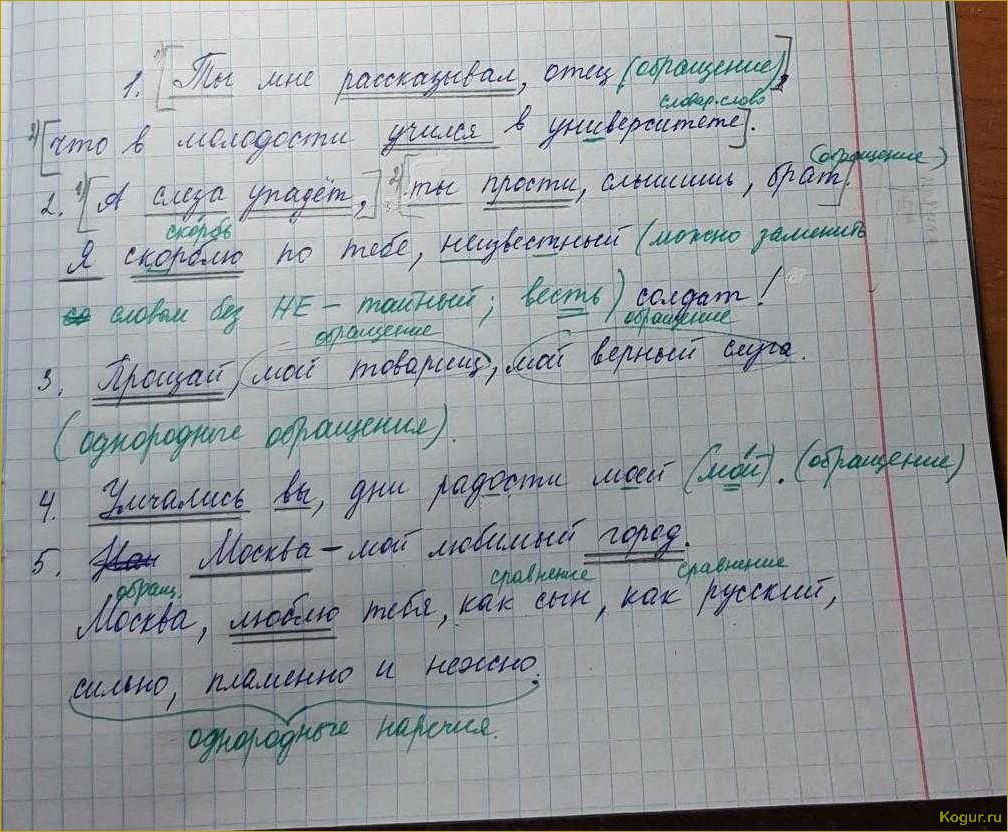 1. 1) [Ты мне рассказывал, отец (обращение)],
словар. слово
2) [что в молодости учился в университете].
(обращение)
2. 1) [А слеза упадёт,] 2) [ты прости, слышишь, брат].
скорбь
Я скорблю по тебе, неизвестный (можно заменить
словом без НЕ – тайный; весть) солдат!
обращение обращение
3. Прощай, мой товарищ, мой верный слуга.
(однородные обращения).
4. Умчались вы, дни радости моей (мой). (обращение)
5. Москва – мой любимый город.
обращ. сравнение сравнение
Москва, люблю тебя, как сын, как русский,
сильно, пламенно и нежно.
однородные наречия.
Kogur.ru